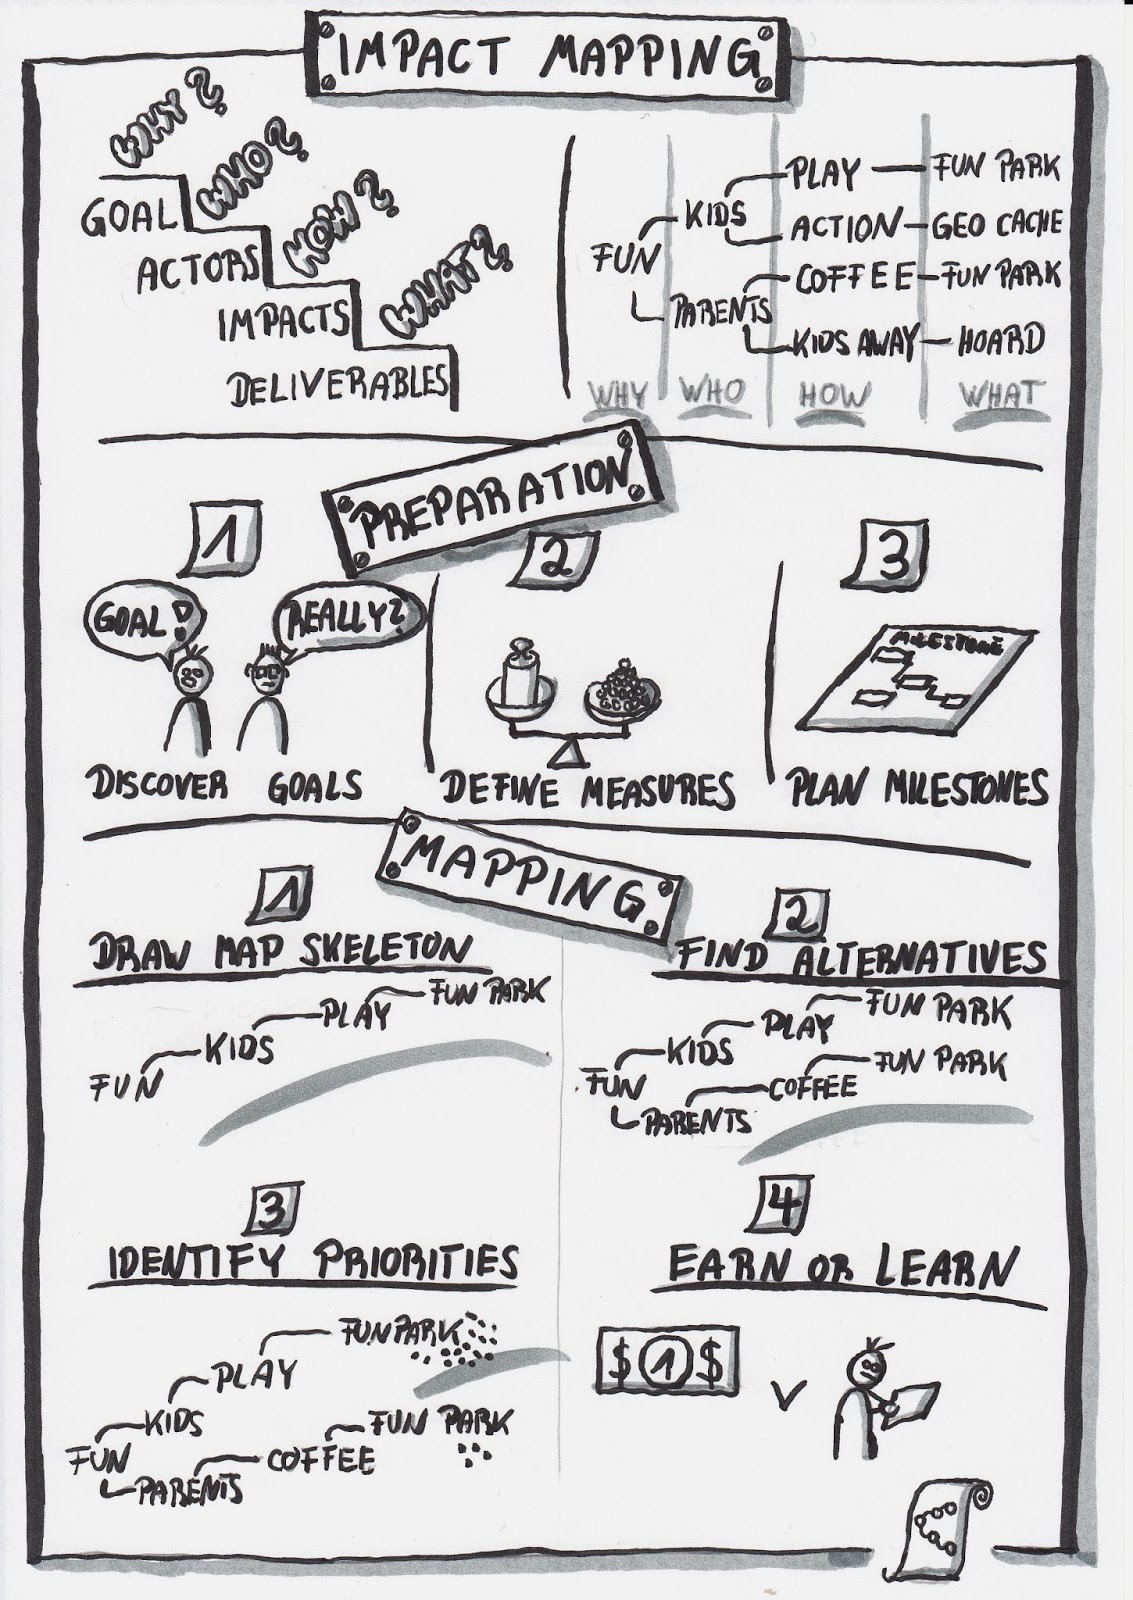 IMPACT MAPPING
WHY?
GOAL
WHO?
ACTORS
HOW?
IMPACTS
WHAT?
DELIVERABLES
PLAY FUN PARK
KIDS
ACTION GEO CACHE
FUN
COFFEE FUN PARK
PARENTS
KIDS AWAY HOARD
WHY WHO HOW WHAT
PREPARATION
1
GOAL!
REALLY?
DISCOVER GOALS
2
DEFINE MEASURES
3
MILESTONE
PLAN MILESTONES
MAPPING
1
DRAW MAP SKELETON
FUN PARK
PLAY
KIDS
FUN
2
FIND ALTERNATIVES
FUN PARK
PLAY
KIDS
FUN PARK
FUN
COFFEE
PARENTS
3
IDENTIFY PRIORITIES
FUN PARK
PLAY
KIDS
FUN PARK
FUN
COFFEE
PARENTS
4
EARN OR LEARN
$ 1 $